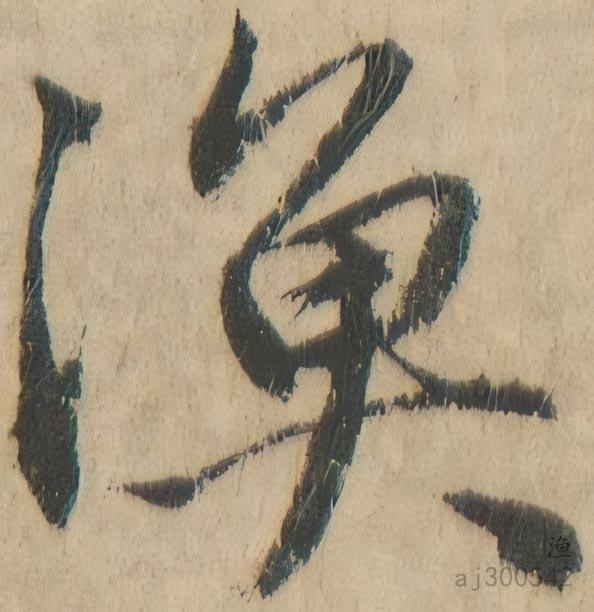 渔
渔
aj300542